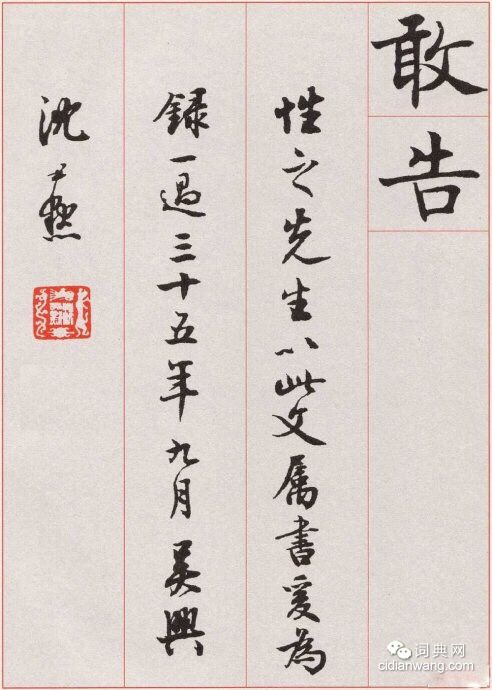 敢告
性之先生以此文属书爰為
録一過三十五年九月吴興
沈尹默
词典网
cidianwang.com